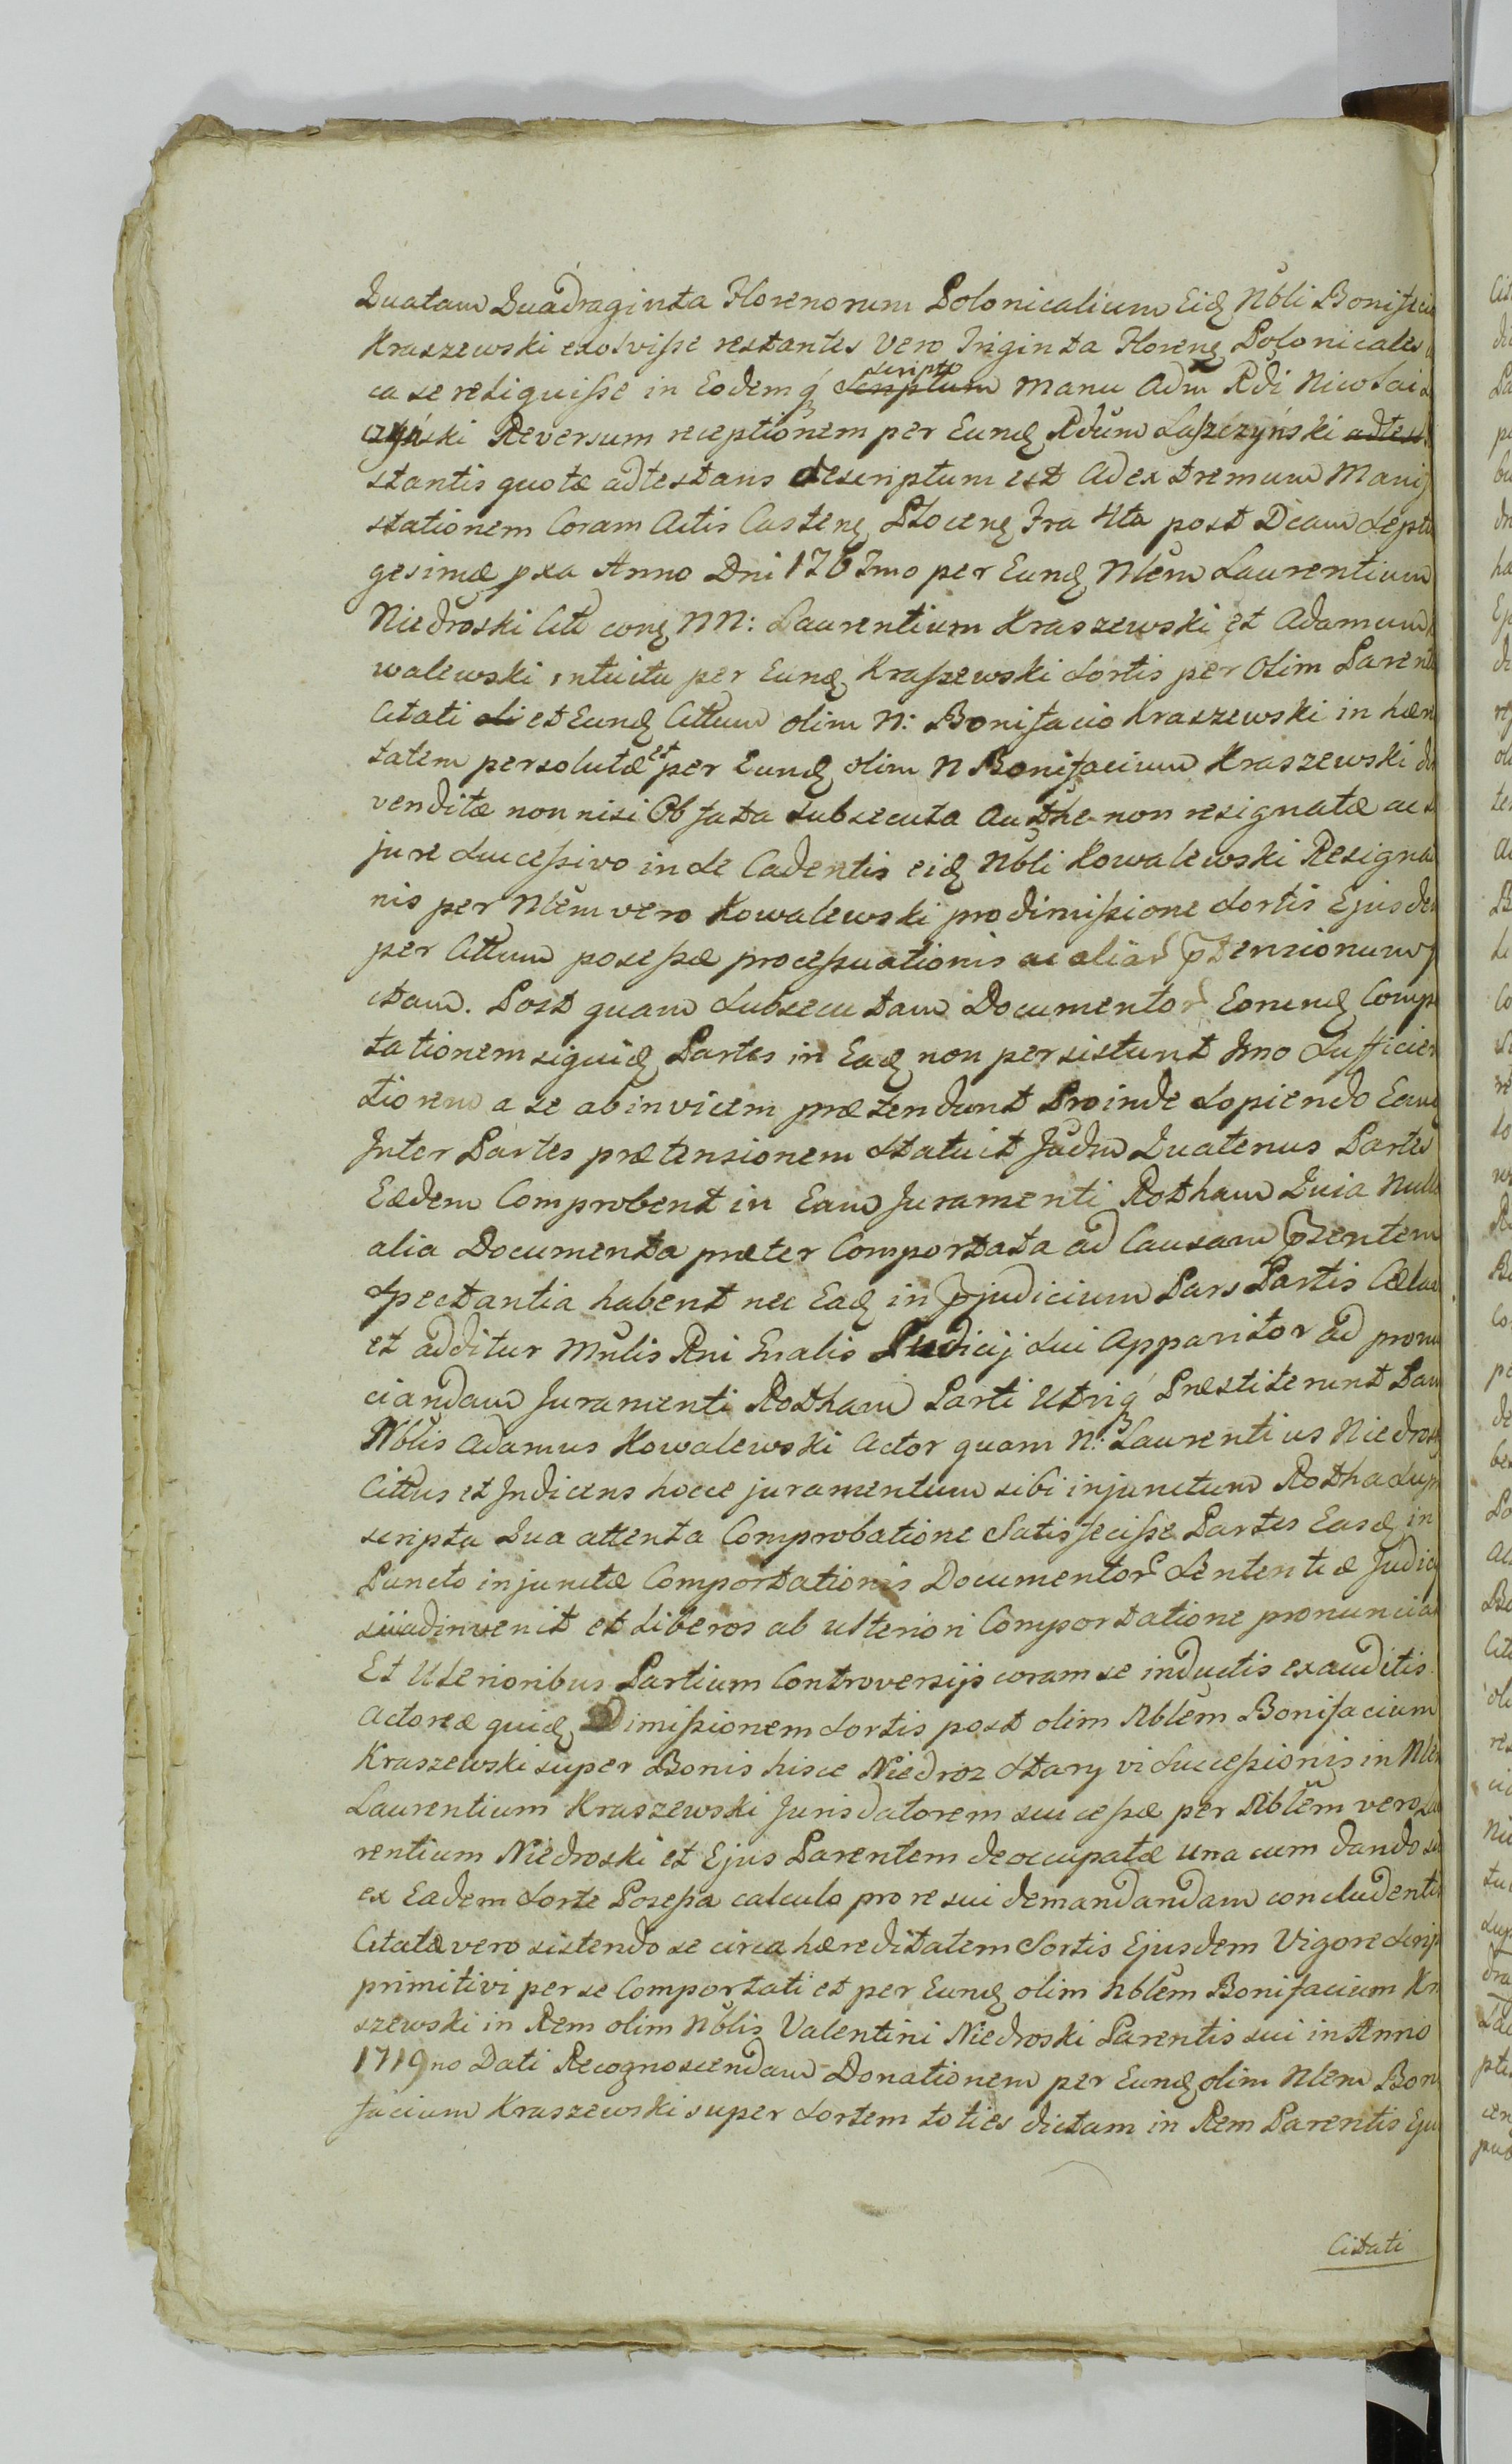 Quatam Quadraginta Florenorum Polonicalium Eidꝫ Nbli Bonifacio
Kraszewski exolvisse restantes Vero Triginta Florenꝫ Polonicales
ca se reliquisse in Eodem qꝫ scripto Scriptum manu Adm Rdi Nicolai
czyński Reversum receptionem per Eundꝫ Rdum Laszczyński adtest
stantis quotæ adtestans descriptum est ad extremum Manif
stationem Coram Actis Castrenꝫ Plocenꝫ Fra 4ta post Dcam Septu
gesimæ pxa Anno Dni 1762mo per Eundꝫ Nlem Laurentium
Niedroski Citt conꝫ NN: Laurentium Kraszewski et Adamum
walewski intuitu per Eundꝫ Kraszewski Sortis per Olim Parent
Citati oli et Eundꝫ Cittum olim N: Bonifacio Kraszewski in hæn
tatem persolutæ et per Eundꝫ olim N Bonifacium Kraszewski de
venditæ non nisi Ob fata subsecuta Authe non resignatæ ac
jure Successivo in de Cadentis eidꝫ Nbli Kowalewski Resigna
nis per Nlem vero Kowalewski pro dimissione Sortis Ejusdem
per Cittum posessæ processuationis ac aliar ptensionum
ctam. Post quam Subsecutam Documentor Eorundꝫ Compr
tationem siquidꝫ Partes in Eadꝫ non persistunt Imo Sufficien
tiorem a se ab invicem prætendunt Proinde Sopiendo Eand
Inter Partes prætensionem Statuit Judm Quatenus Partes
Eædem Comprobent in Eam Juramenti Rotham Quia Nulla
alia Documenta præter Comportata ad Causam pzentem
Spectantia habent nec Eadꝫ in pjudicium Pars Partis Cælav
et additur Mnlis Rni Gnalis Judicij Sui Apparitor ad pronun
ciandam Juramenti Rotham Parti Utriqꝫ Præstiterunt Tam
Nblis Adamus Kowalewski Actor quam N: Laurentius Niedroski
Cittus et Indicens hocce juramentum sibi injunctum Rotha Supra
scripta Qua attenta Comprobatione Satisfecisse Partes Easdꝫ in
Puncto injunctæ Comportationis Documentor Sententiæ Judicij
sui adinvenit et liberos ab ulteriori Comportatione pronunciat
Et Ulterioribus Partium Controversijs coram se inductis exauditis
Actoreæ quidꝫ Dimissionem Sortis post olim Nblem Bonifacium
Kraszewski super Bonis hisce Niedroz Stary vi Successionis in Nlem
Laurentium Kraszewski Jurisdatorem successæ per Nblem vero Lau
rentium Niedroski et Ejus Parentem deoccupatæ una cum dando
ex Eadem Sorte Posessa calculo pro re sui demandandam concludentis
Citatæ vero sistendo se circa hæreditatem Sortis Ejusdem Vigore Scrip
primitivi per se Comportati et per Eundꝫ olim Nblem Bonifacium Kra
szewski in Rem olim Nblis Valentini Niedroski Parentis sui in Anno
1719no Dati Recognoscendam Donationem per Eundꝫ olim Nlem Boni
facium Kraszewski super Sortem toties dictam in Rem Parentis Eju
Citati